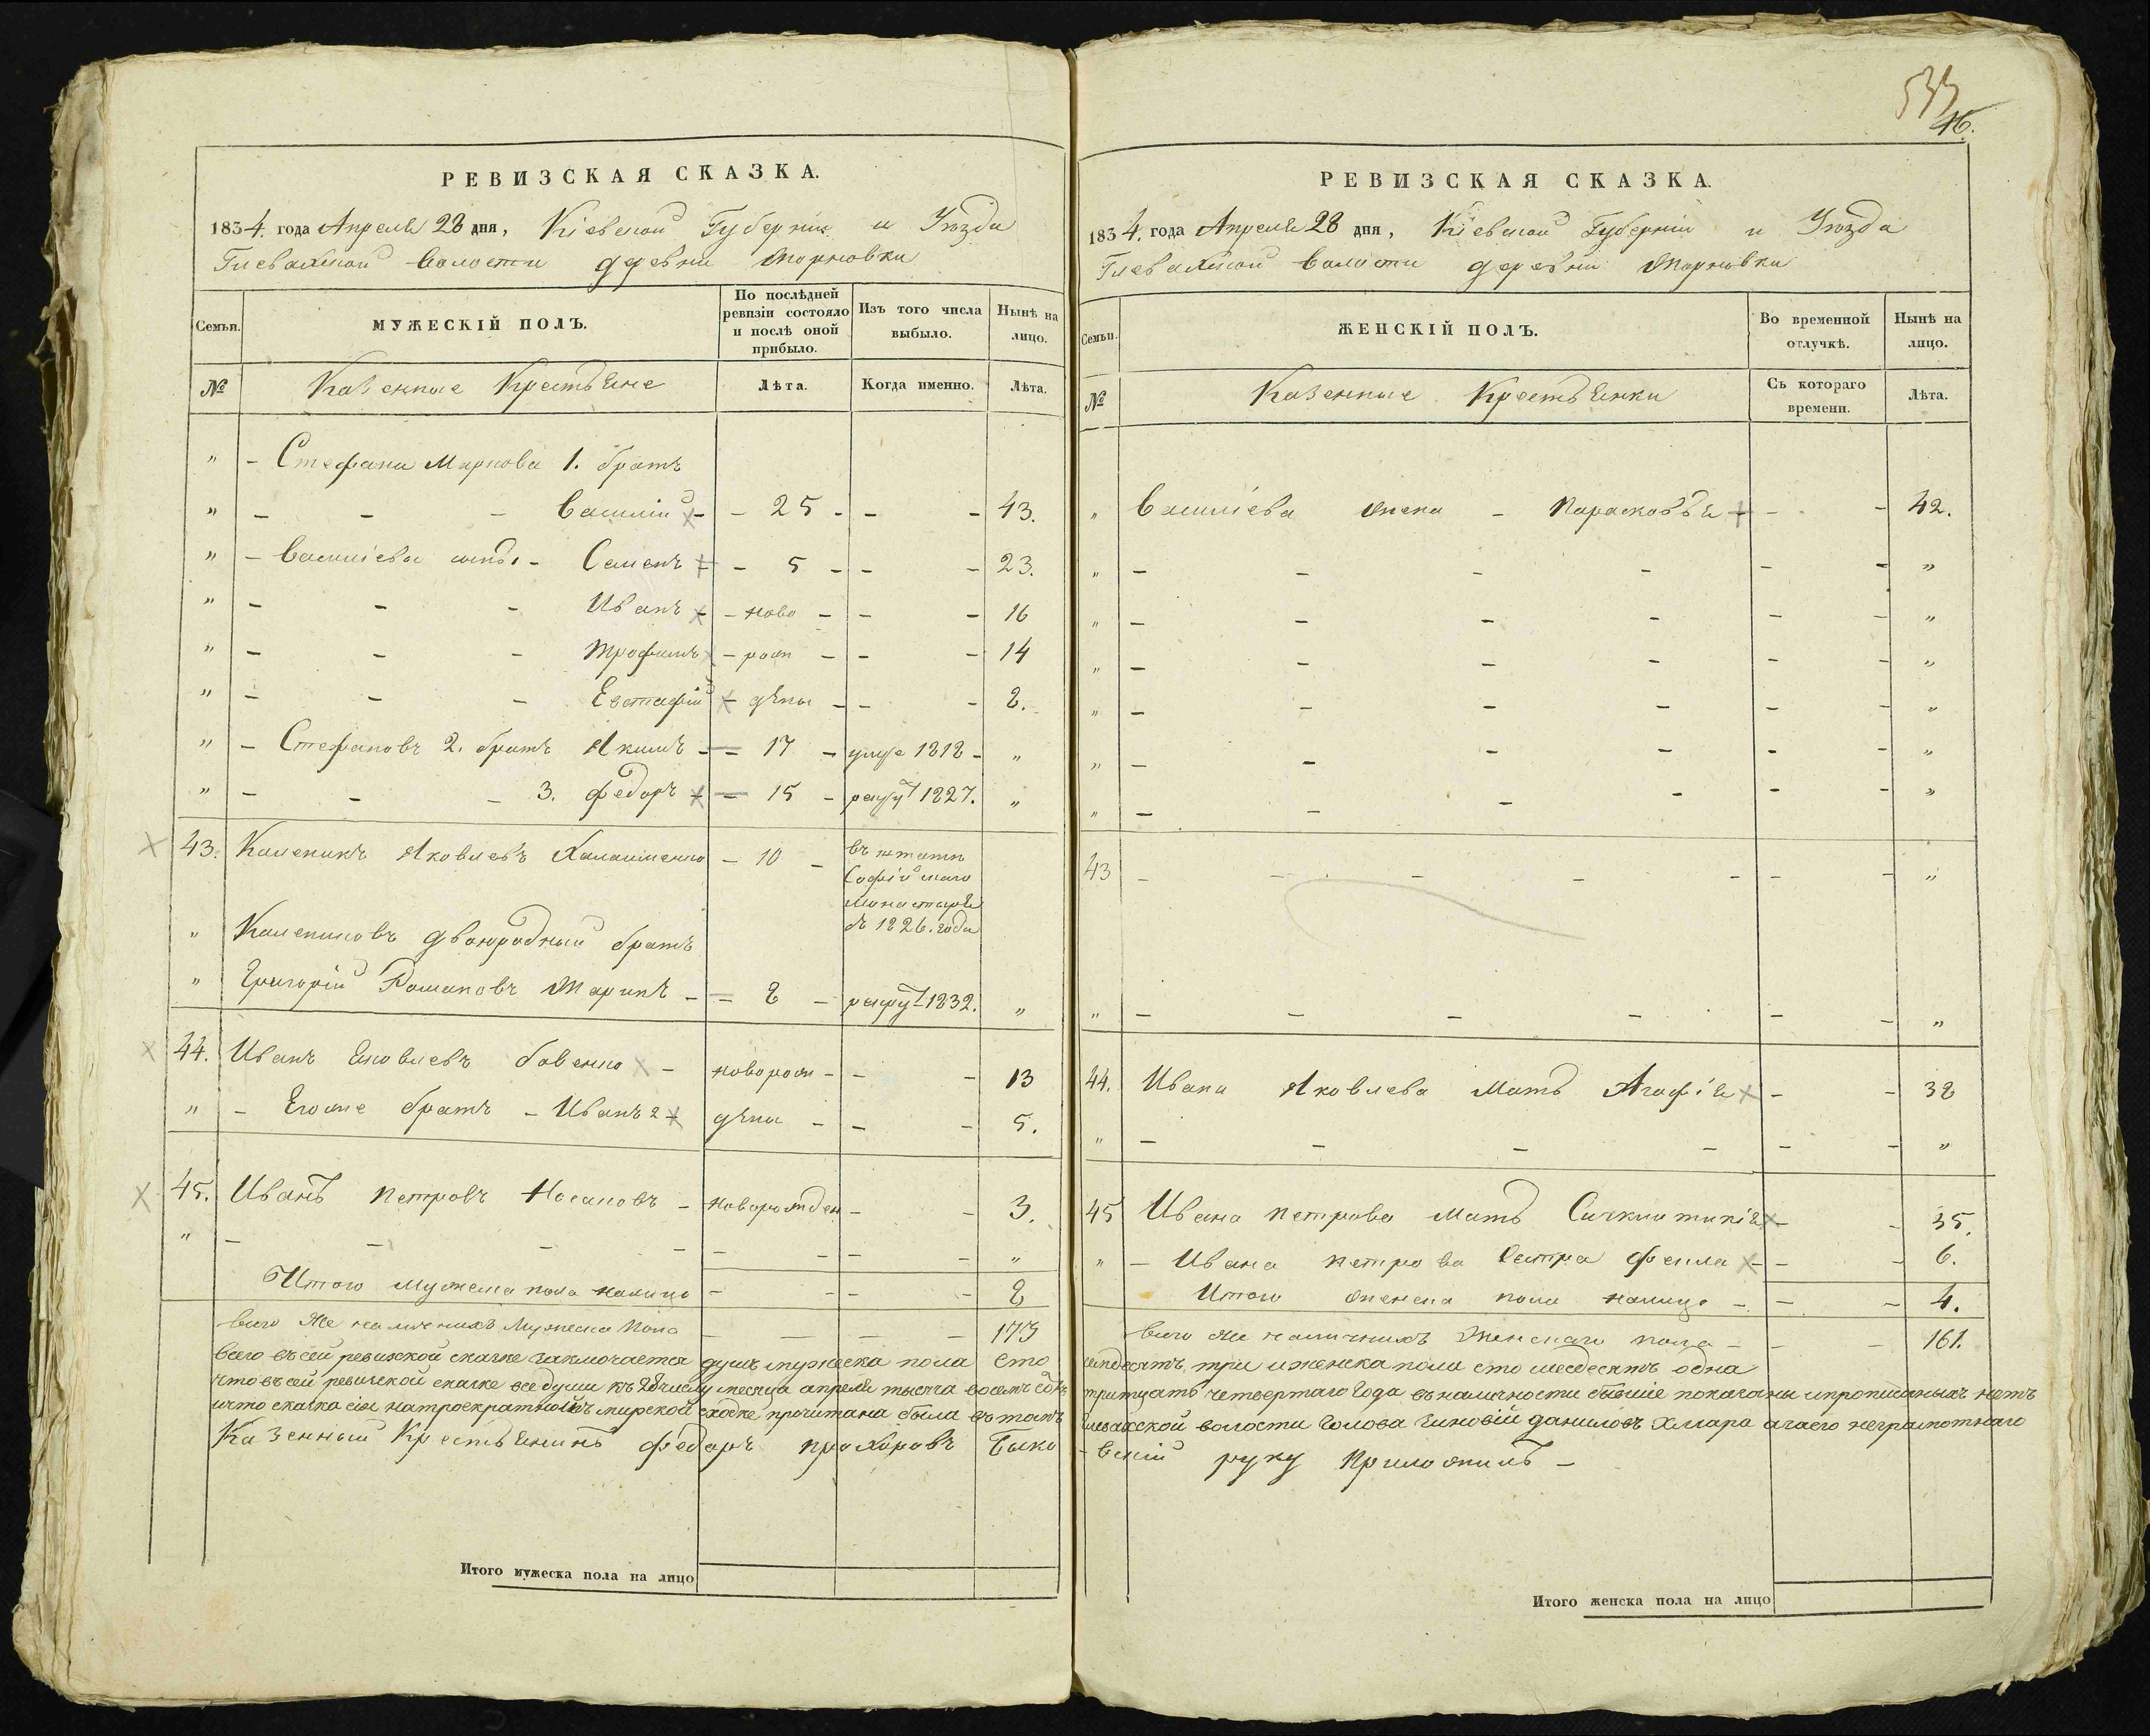 РЕВИЗСКАЯ СКАЗКА.
1834. года Апреля 28 дня, Кіевской Губерніи и Уѣзда
Глевахской Волости деревни Марковки
Семьи.
МУЖЕСКІЙ ПОЛЪ.
По послѣдней ревизіи состояло и послѣ оной прибыло.
Изъ того числа выбыло.
Нынѣ на лицо.
№ Казенные Крестьяне Лѣта. Когда именно. Лѣта.
" - Стефана Маркова 1. братъ
" - - - Василій - 25 - - - 43.
" - Василіева сынъ - Семенъ - 5 - - - 23.
" - - - Иванъ - ново - - - 16
" - - - Трофимъ - рож - - - 14
" - - - Евстафій - дѣны - - - 8.
" - Стефановъ 2. братъ Якимъ - 17 - умре 1818 - "
" - - - 3. Федоръ - 15 - рекрут 1827. "
43. Каленикъ Яковлевъ - 10 - въ штатъ
Софійскаго
Монастыря
съ 1826. года
" Калениковъ двоюродный братъ
" Григорій Романовъ - 8 - рекрут 1832. "
44. Иванъ Яковлевъ Бовенко - новорож - - - 13
" - Егоже братъ - Иванъ 2 дѣны - - - 5.
45. Иванъ Петровъ Носановъ - новорожден - - 3.
" - - - - - - - - "
Итого мужеска пола налицо - - - 8
Всего же наличнихъ Мужеска Пола - - - - 173
РЕВИЗСКАЯ СКАЗКА.
1834. года Апреля 28 дня, Кіевской Губерніи и Уѣзда
Глевахской Волости деревни Марковки
Семьи.
ЖЕНСКІЙ ПОЛЪ.
Во временной отлучкѣ.
Нынѣ на лицо.
№ Казенные Крестьянки Съ котораго времени. Лѣта.
" Василіева жена - Парасковья - - 42.
" - - - - - - "
" - - - - - - "
" - - - - - - "
" - - - - - - "
" - - - - - - "
" - - - - - - "
43 - - - - - - - "
" - - - - - - "
44. Ивана Яковлева Мать Агафія - - 38
" - - - - - - "
45 Ивана Петрова Мать - - 35.
" - Ивана Петрова Сестра Фекла - - 6.
Итого женска пола налицо - - - 4.
Всего же наличнихъ Женскаго пола - - - 161.
Всего въ сей ревизской сказке заключается душъ мужеска пола сто семдесятъ три и женска пола сто шесдесятъ одна
что въ сей ревизской сказке все души къ 28 числу месяца апреля тысяча восемъ сотъ тритцать четвертаго года въ наличности бывшіе показаны и прописныхъ нетъ
и что сказка сія на троекратной мирской сходке прочитана была въ томъ Глевахской волости Голова Зиновій Даниловъ Хмара а за его неграмотнаго
Казенный Крестьянинъ Федоръ Прохоровъ Быко-
-вскій руку Приложилъ -
Итого мужеска пола на лицо
Итого женска пола на лицо